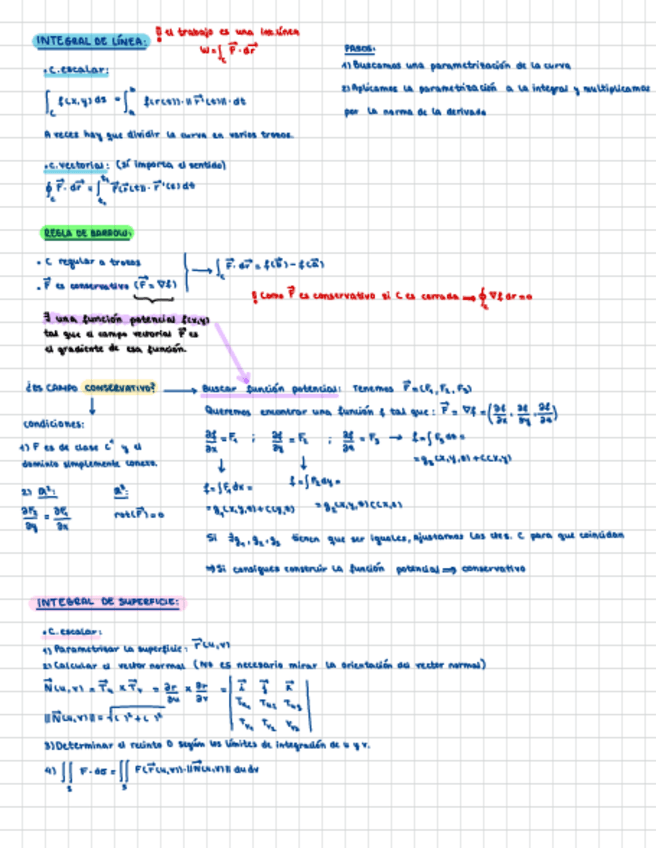 INTEGRAL DE LÍNEA:
! el trabajo es una int. línea
W = ∫_C F⃗ · dr⃗
PASOS:
1) Buscamos una parametrización de la curva
2) Aplicamos la parametrización a la integral y multiplicamos
por la norma de la derivada
• C. escalar:
∫_C f(x,y) ds = ∫_a^b f(r(t)) · ||r⃗'(t)|| · dt
A veces hay que dividir la curva en varios trozos.
• C. vectorial: (sí importa el sentido)
∮_C F⃗ · dr⃗ = ∫_{t₀}^{t₁} F⃗(r⃗(t)) · r⃗'(t) dt
REGLA DE BARROW:
• C regular a trozos
• F⃗ es conservativo (F⃗ = ∇f)
→ ∫_C F⃗ · dr⃗ = f(b⃗) - f(a⃗)
! Como F⃗ es conservativo si C es cerrada ⇒ ∮_C ∇f dr = 0
∃ una función potencial f(x,y)
tal que el campo vectorial F⃗ es
el gradiente de esa función.
¿ES CAMPO CONSERVATIVO? → Buscar función potencial: Tenemos F⃗ = (F₁, F₂, F₃)
Queremos encontrar una función f tal que: F⃗ = ∇f = (∂f/∂x, ∂f/∂y, ∂f/∂z)
condiciones:
1) F es de clase C¹ y el
dominio simplemente conexo.
2) R²: R³:
∂F₂/∂y = ∂F₁/∂x rot(F⃗) = 0
∂f/∂x = F₁ ; ∂f/∂y = F₂ ; ∂f/∂z = F₃ → f = ∫F₃ dz =
= g₃(x,y,z) + C(x,y)
f = ∫F₁ dx = f = ∫F₂ dy =
= g₁(x,y,z) + C(y,z) = g₂(x,y,z) C(x,z)
Si ∃ g₁, g₂, g₃ tienen que ser iguales, ajustamos las ctes. C para que coincidan
⇒ Si consigues construir la función potencial ⇒ conservativo
INTEGRAL DE SUPERFICIE:
• C. escalar:
1) Parametrizar la superficie: r⃗(u,v)
2) Calcular el vector normal (No es necesario mirar la orientación del vector normal)
N⃗(u,v) = T⃗u × T⃗v = ∂r/∂u × ∂r/∂v = | i⃗ j⃗ k⃗
Tu₁ Tu₂ Tu₃
Tv₁ Tv₂ Tv₃ |
||N⃗(u,v)|| = √( )² + ( )²
3) Determinar el recinto D según los límites de integración de u y v.
4) ∬_S F · dσ = ∬_S F(r⃗(u,v)) · ||N⃗(u,v)|| du dv